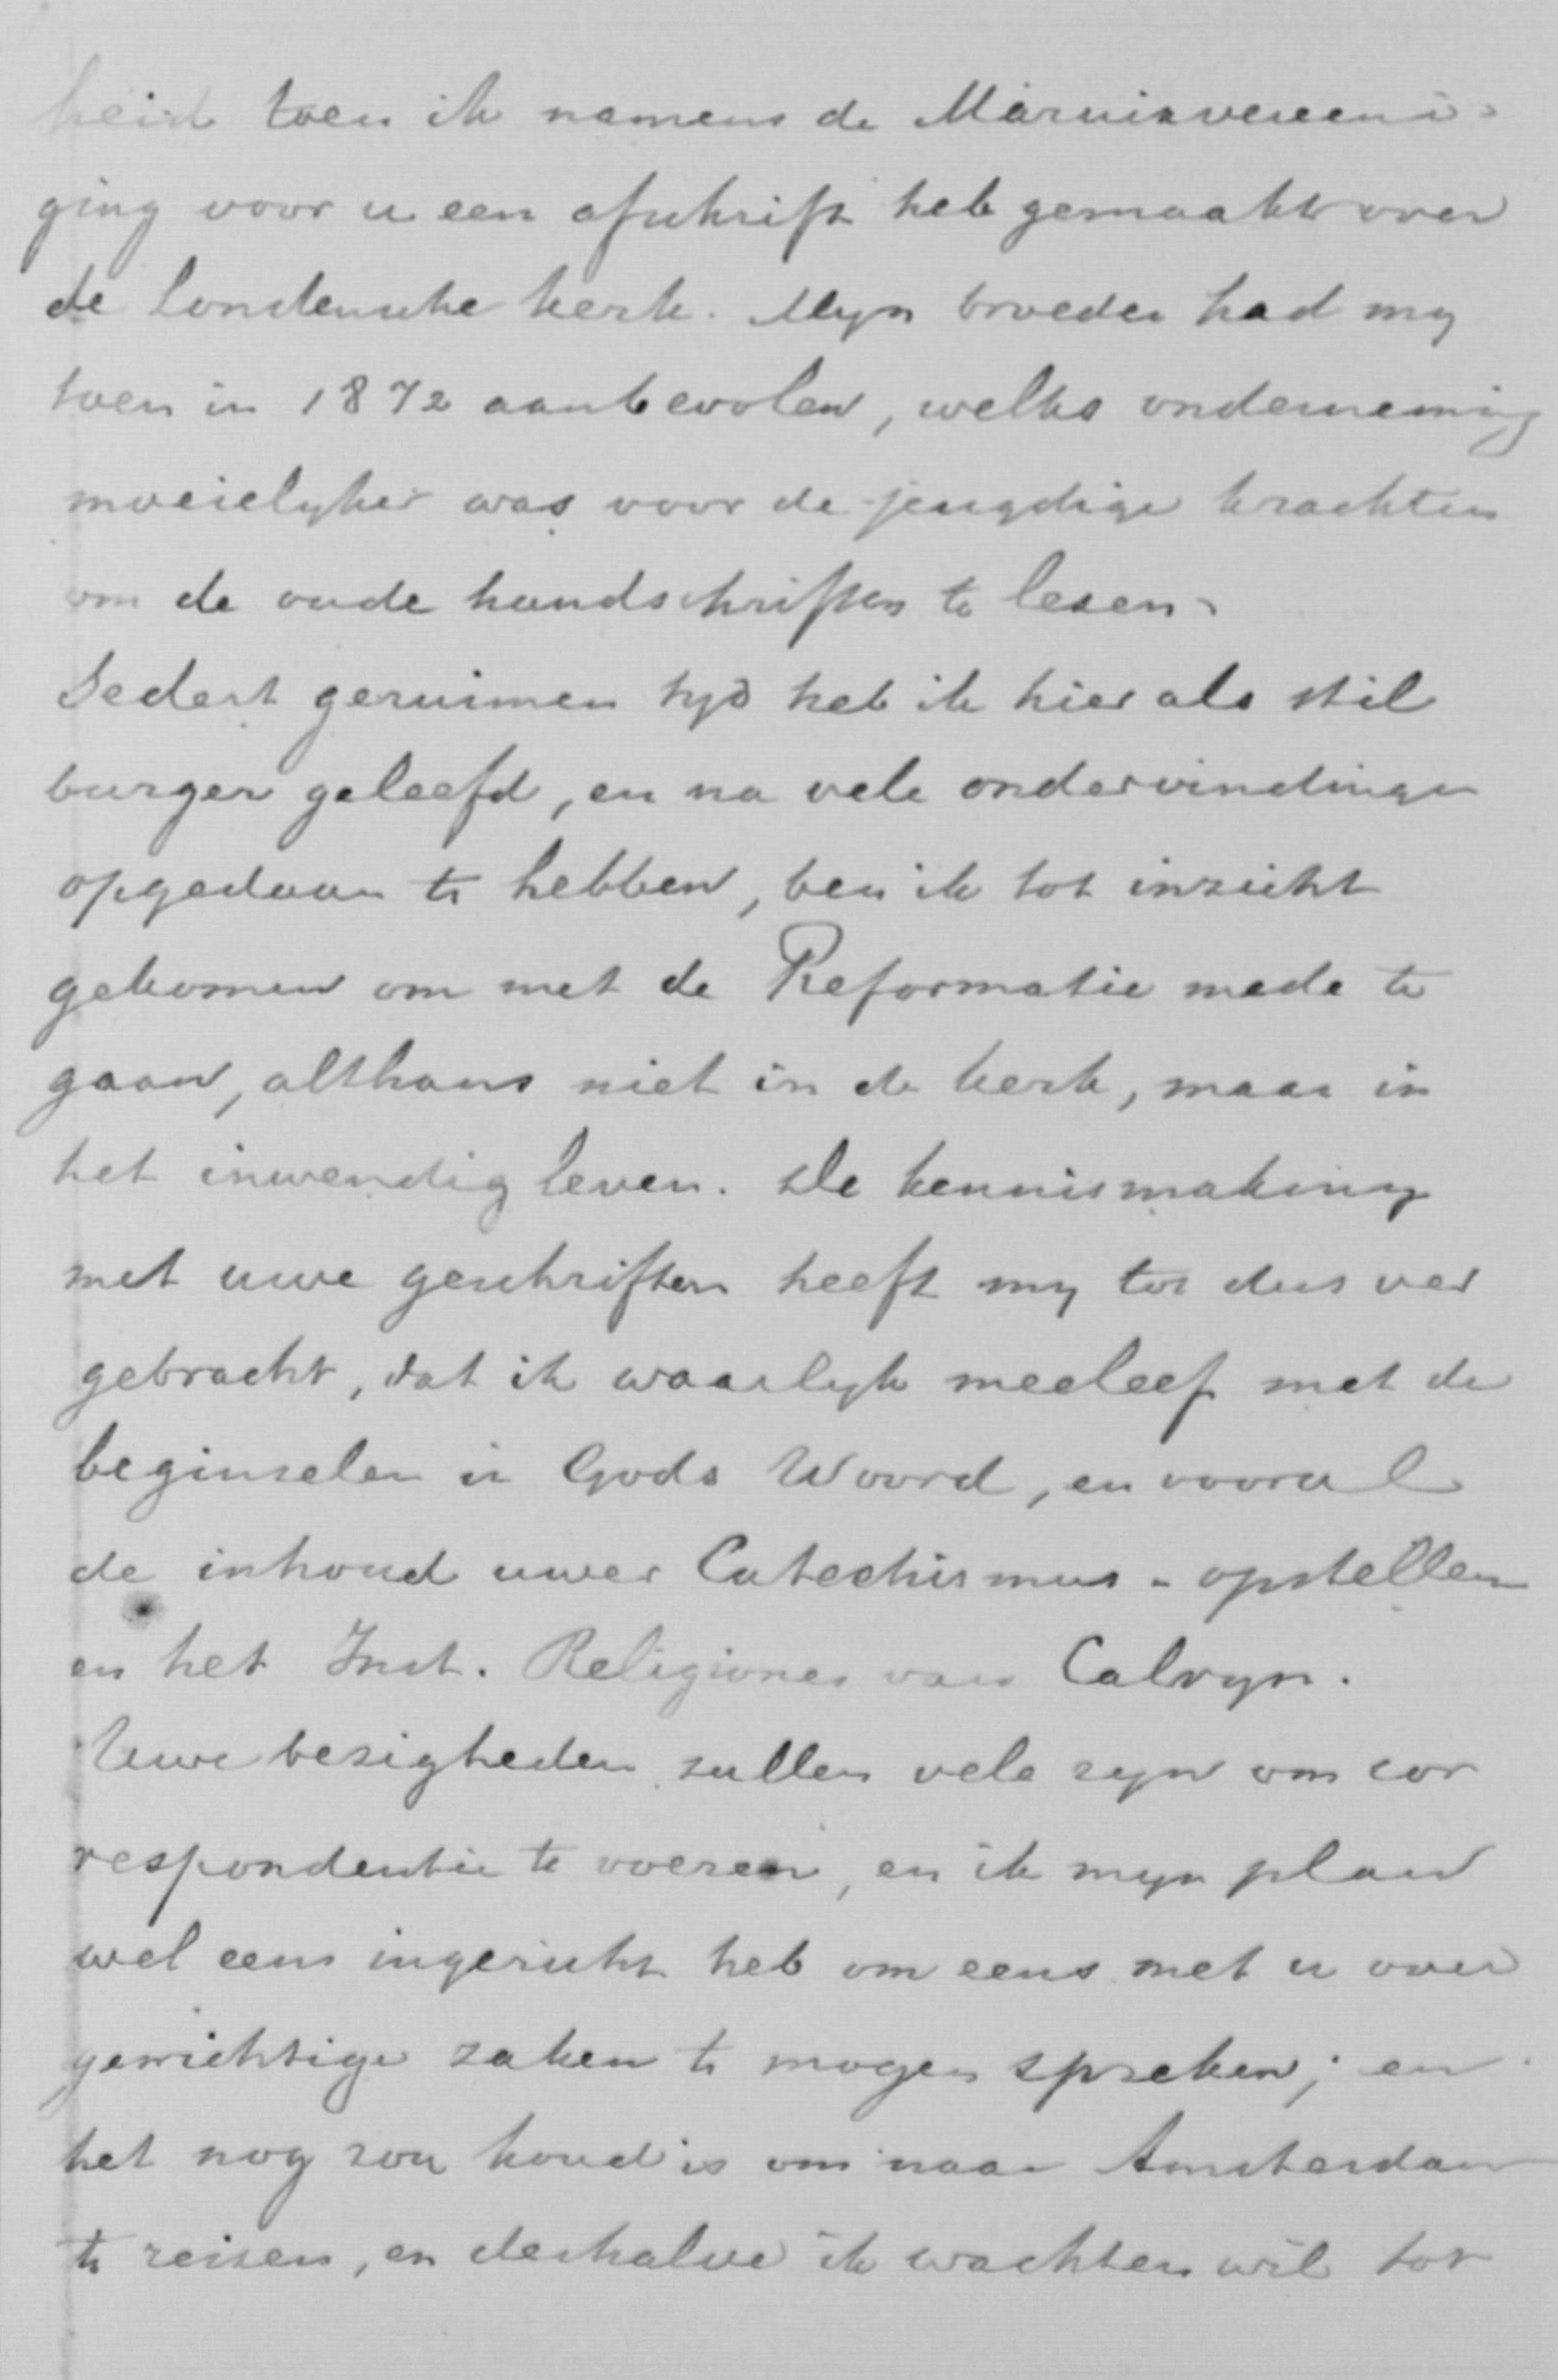 heid toen ik namens de Marnixvereeni-
ging voor u een afschrift heb gemaakt over
de Londensche kerk. Mijn broeder had mij
toen in 1872 aanbevolen, welks onderneming
moeielijker was voor de jeugdige krachten
om de oude handschriften te lezen.
Sedert geruimen tijd heb ik hier als stil
burger geleefd, en na vele ondervindingen
opgedaan te hebben, ben ik tot inzicht
gekomen om met de Reformatie mede te
gaan, althans niet in de kerk, maar in
het inwendig leven. De kennismaking
met uwe geschriften heeft mij tot dus ver
gebracht, dat ik waarlijk meeleef met de
beginselen in Gods Woord, en vooral
de inhoud uwer Catechismus-opstellen
en het Inst. Religiones van Calvyn.
Uwe bezigheden zullen vele zijn om cor
respondentie te voeren, en ik mijn plan
wel eens ingericht heb om eens met u over
gewichtige zaken te mogen spreken; en
het nog zou koud is om naar Amsterdam
te reizen, en derhalve ik wachten wil tot